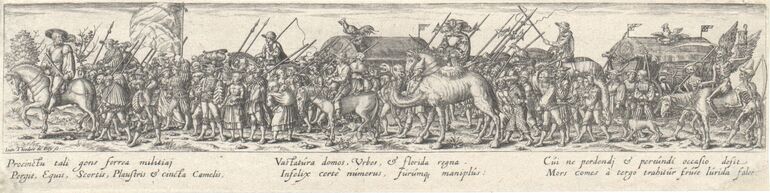 de Bry
Procinctu tali gens ferrea militiaj
Pergit, Equit, Scortis, Plaustris & cincta Camelis.
Vastatura domos, Urbes, & florida regna
Infelix certè numerus, furumq; maniplus:
Cui ne perdendj & pereundi occasio desit
Mors comes à tergo trahitur lurida